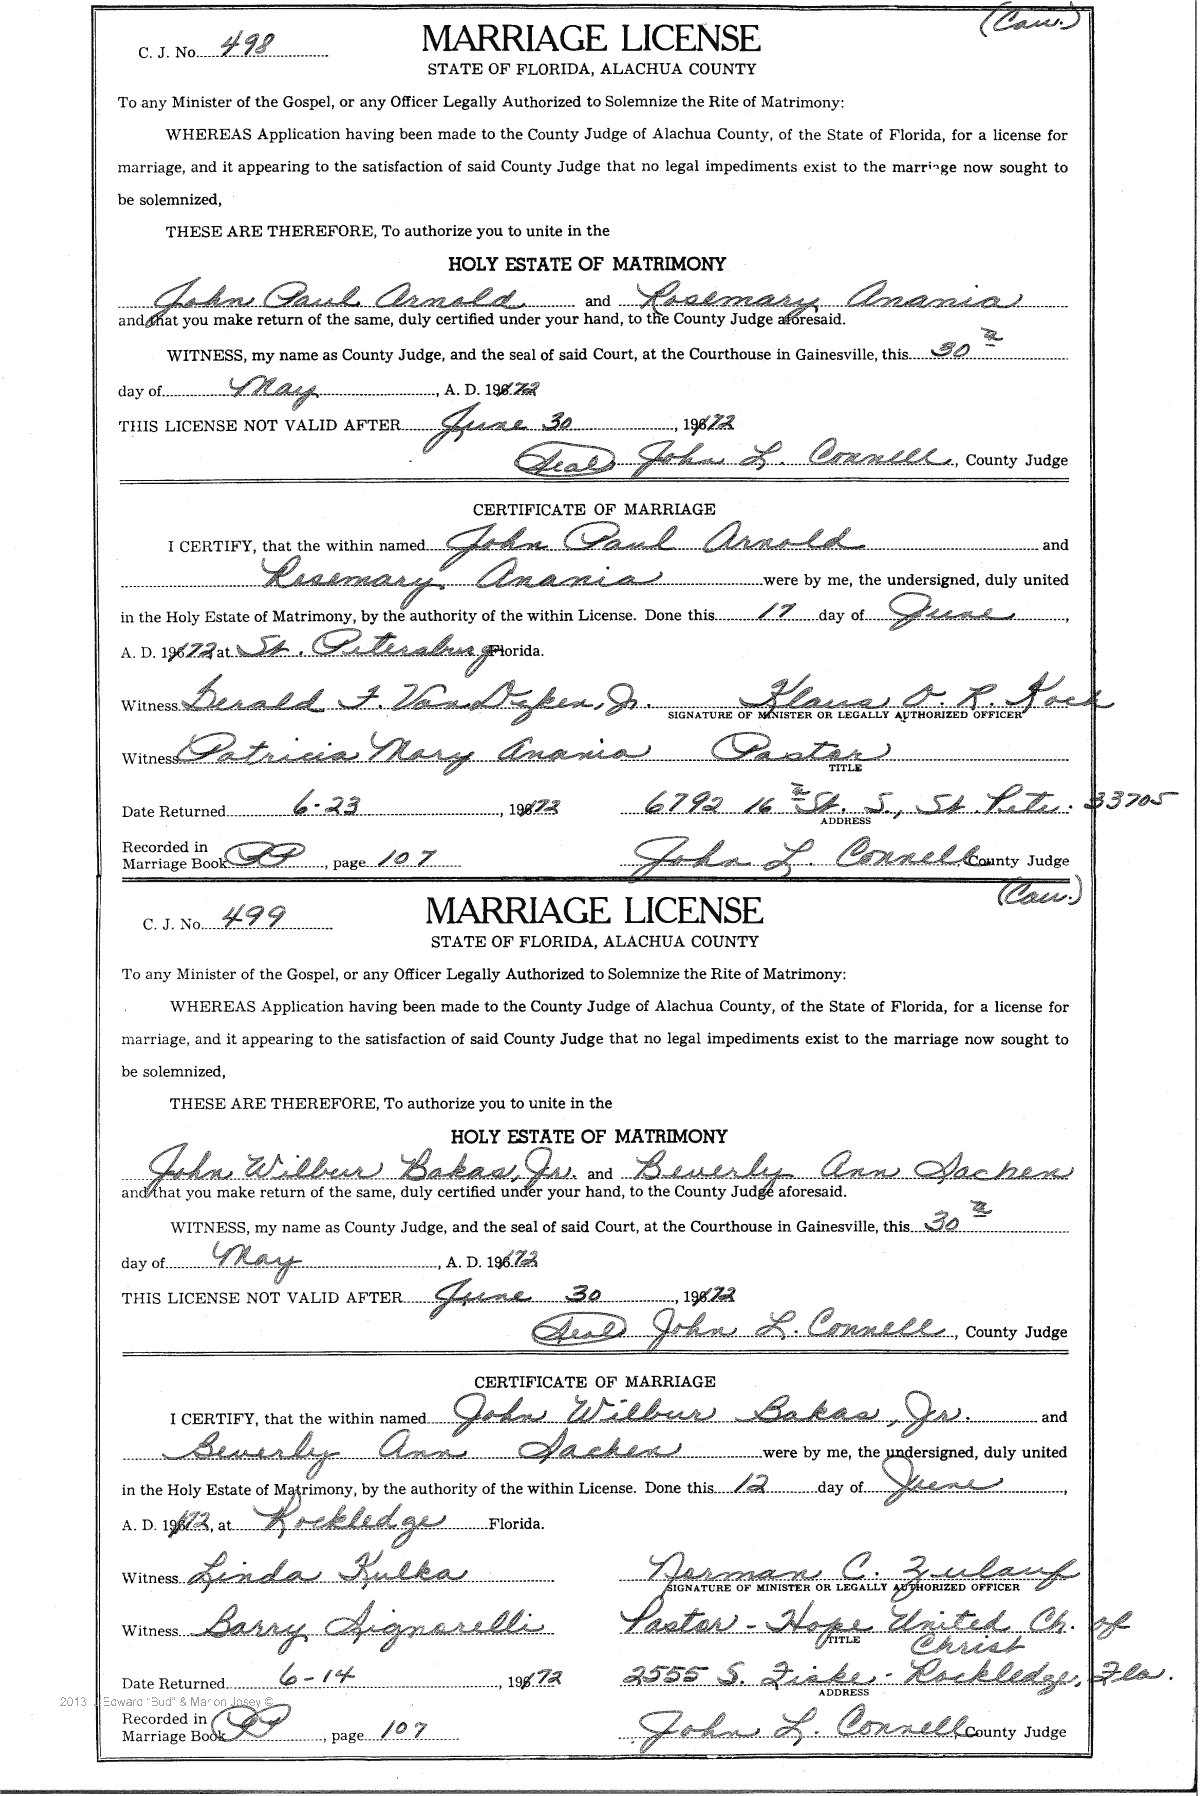 (Cau.)
C. J. No. 498 MARRIAGE LICENSE
STATE OF FLORIDA, ALACHUA COUNTY
To any Minister of the Gospel, or any Officer Legally Authorized to Solemnize the Rite of Matrimony:
WHEREAS Application having been made to the County Judge of Alachua County, of the State of Florida, for a license for
marriage, and it appearing to the satisfaction of said County Judge that no legal impediments exist to the marriage now sought to
be solemnized,
THESE ARE THEREFORE, To authorize you to unite in the
HOLY ESTATE OF MATRIMONY
John Paul Arnold and Rosemary Anania
and that you make return of the same, duly certified under your hand, to the County Judge aforesaid.
WITNESS, my name as County Judge, and the seal of said Court, at the Courthouse in Gainesville, this 30th
day of May, A. D. 1972
THIS LICENSE NOT VALID AFTER June 30, 1972
(Seal) John L. Connell, County Judge
CERTIFICATE OF MARRIAGE
I CERTIFY, that the within named John Paul Arnold and
Rosemary Anania were by me, the undersigned, duly united
in the Holy Estate of Matrimony, by the authority of the within License. Done this 17 day of June,
A. D. 1972, at St. Petersburg Florida.
Witness Gerald F. VanDyken, Jr. Klaus O. R. Koch
SIGNATURE OF MINISTER OR LEGALLY AUTHORIZED OFFICER
Witness Patricia Mary Anania Pastor
TITLE
Date Returned 6-23, 1972 6792 16th St. S., St. Pete. 33705
ADDRESS
Recorded in
Marriage Book PP, page 107 John L. Connell County Judge
(Cau.)
C. J. No. 499 MARRIAGE LICENSE
STATE OF FLORIDA, ALACHUA COUNTY
To any Minister of the Gospel, or any Officer Legally Authorized to Solemnize the Rite of Matrimony:
WHEREAS Application having been made to the County Judge of Alachua County, of the State of Florida, for a license for
marriage, and it appearing to the satisfaction of said County Judge that no legal impediments exist to the marriage now sought to
be solemnized,
THESE ARE THEREFORE, To authorize you to unite in the
HOLY ESTATE OF MATRIMONY
John Wilbur Bakas, Jr. and Beverly Ann Sachen
and that you make return of the same, duly certified under your hand, to the County Judge aforesaid.
WITNESS, my name as County Judge, and the seal of said Court, at the Courthouse in Gainesville, this 30th
day of May, A. D. 1972
THIS LICENSE NOT VALID AFTER June 30, 1972
(Seal) John L. Connell, County Judge
CERTIFICATE OF MARRIAGE
I CERTIFY, that the within named John Wilbur Bakas, Jr. and
Beverly Ann Sachen were by me, the undersigned, duly united
in the Holy Estate of Matrimony, by the authority of the within License. Done this 12 day of June,
A. D. 1972, at Rockledge Florida.
Witness Linda Kulka Norman C. Zulauf
SIGNATURE OF MINISTER OR LEGALLY AUTHORIZED OFFICER
Witness Barry Signorelli Pastor - Hope United Ch. of
TITLE Christ
Date Returned 6-14, 1972 2555 S. Fiske - Rockledge, Fla.
ADDRESS
2013 J Edward "Bud" & Marion Josey ©
Recorded in
Marriage Book PP, page 107 John L. Connell County Judge